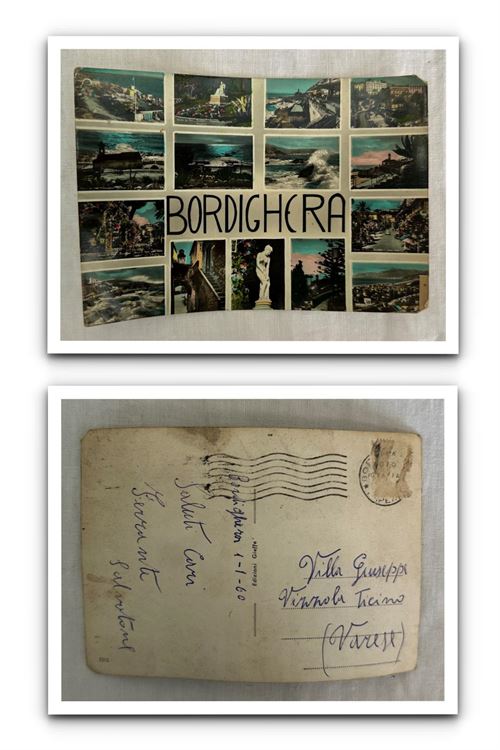 BORDIGHERA
Bordighera 1-1-60
Saluti Cari
Ferrante
Salvatore
Edizioni Giaffe
Villa Giuseppe
Vizzola Ticino
(Varese)